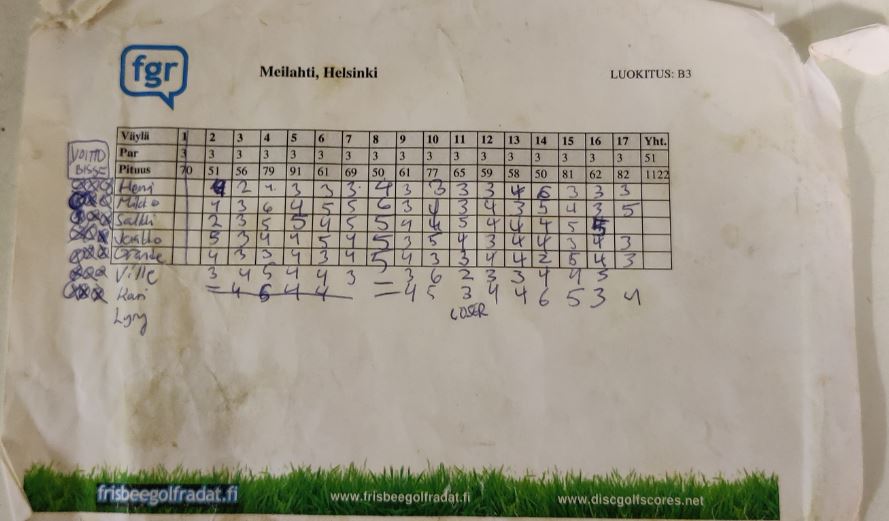 fgr
Meilahti, Helsinki
LUOKITUS: B3
Väylä 1 2 3 4 5 6 7 8 9 10 11 12 13 14 15 16 17 Yht.
VOITTO Par 3 3 3 3 3 3 3 3 3 3 3 3 3 3 3 3 3 51
BISSE Pituus 70 51 56 79 91 61 69 50 61 77 65 59 58 50 81 62 82 1122
Henri 4 2 4 3 3 3 4 3 3 3 3 4 6 3 3 3
4 3 6 4 5 5 6 3 4 3 4 3 5 4 3 5
2 3 5 5 4 5 5 4 4 5 4 4 4 5 5
5 3 4 4 5 4 5 3 5 4 3 4 4 3 4 3
4 3 3 4 3 4 5 4 3 3 4 4 2 5 4 3
Ville 3 4 5 4 4 3 = 3 6 2 3 3 4 4 5
Kari = 4 6 4 4 = 4 5 3 4 4 6 5 3 4
LOSER
frisbeegolfradat.fi
www.frisbeegolfradat.fi
www.discgolfscores.net